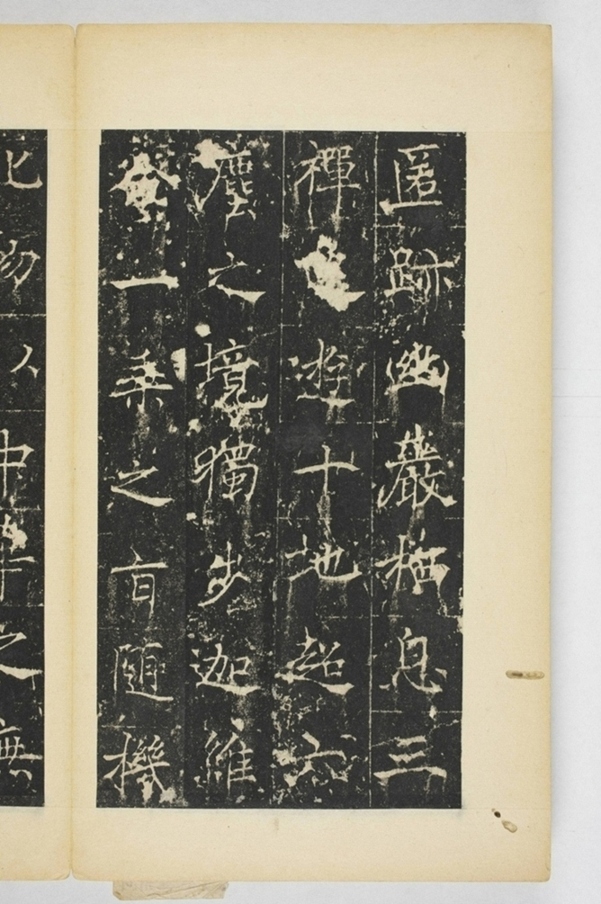 匿跡幽巖栖息三
禪巡遊十地超六
塵之境獨步迦維
會一乘之旨隨機
物以中之無